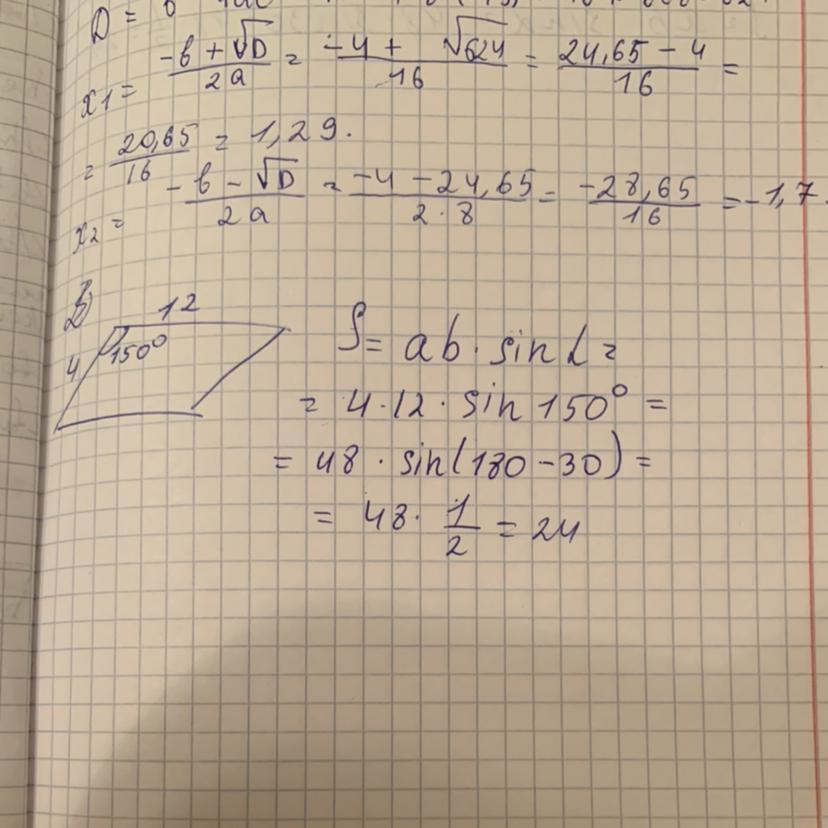 D = b
x1 = (-b + √D)/(2a) = (-4 + √624)/16 = (24,65 - 4)/16 =
= 20,65/16 = 1,29.
x2 = (-b - √D)/(2a) = (-4 - 24,65)/(2·8) = -28,65/16 = -1,7.
12
4
150°
S = ab · sin L =
= 4·12 · sin 150° =
= 48 · sin(180 - 30) =
= 48 · 1/2 = 24